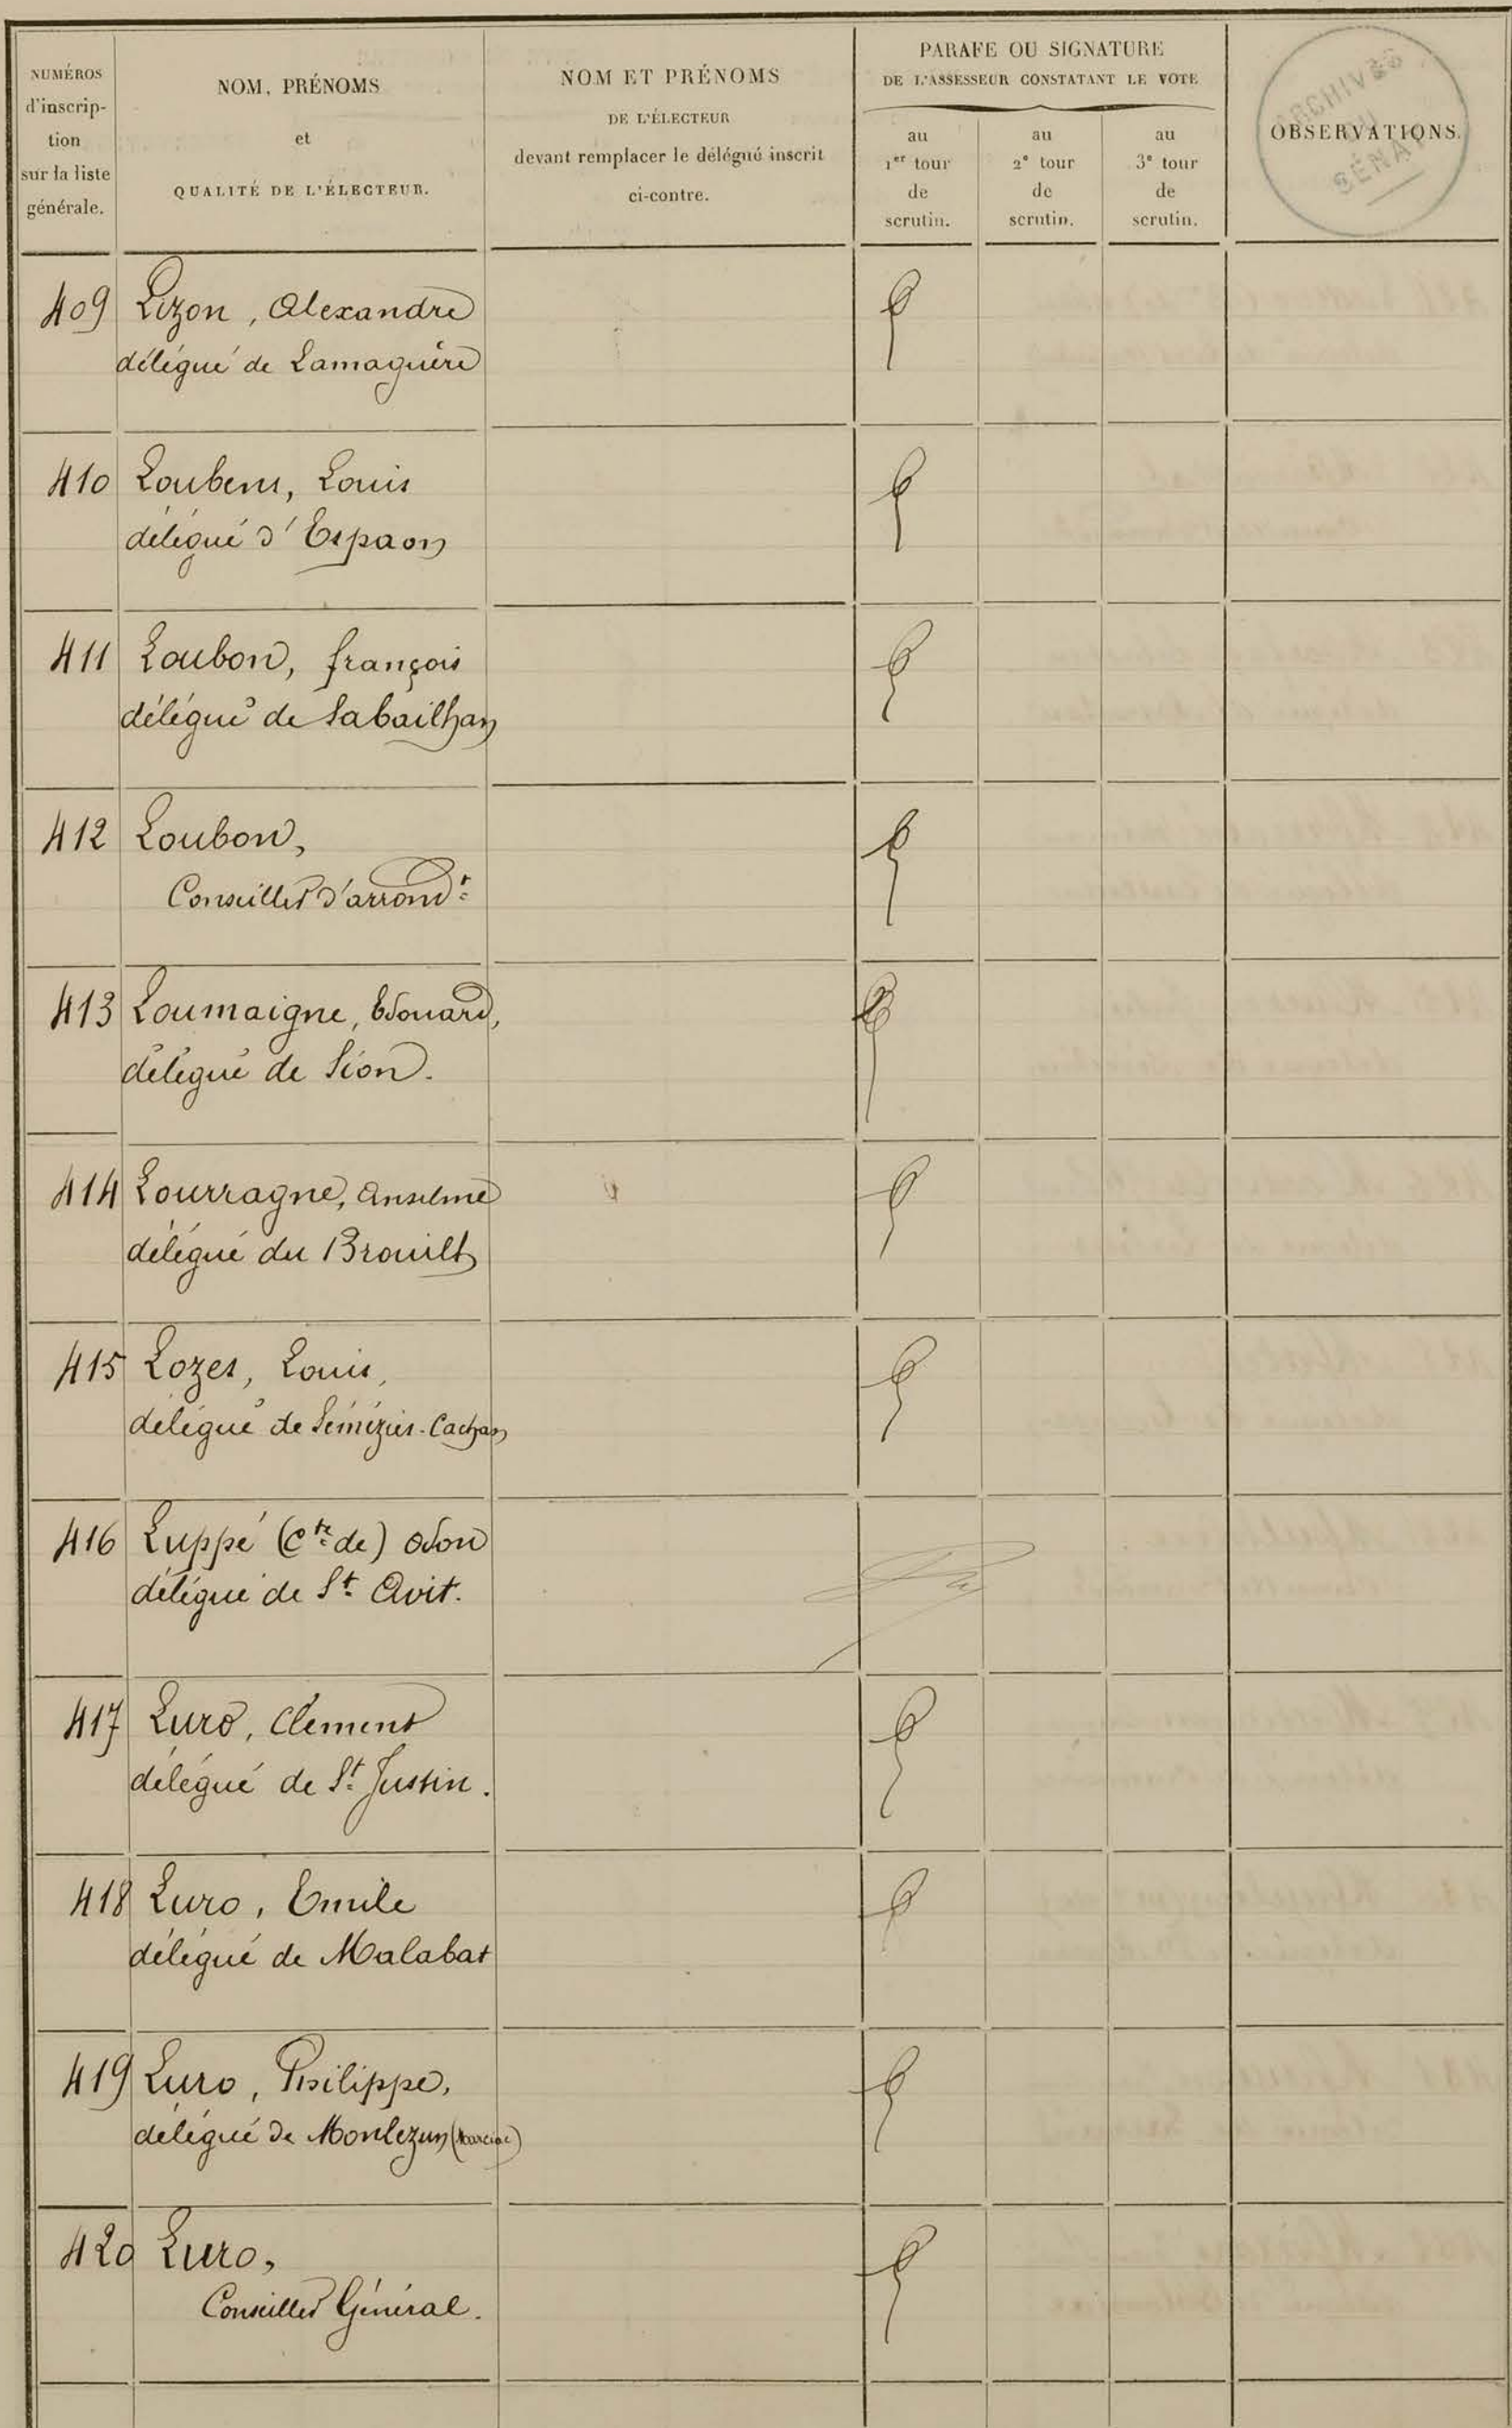 NUMÉROS
d'inscrip-
tion
sur la liste
générale.
NOM, PRÉNOMS
et
QUALITÉ DE L'ÉLECTEUR.
NOM ET PRÉNOMS
DE L'ÉLECTEUR
devant remplacer le délégué inscrit
ci-contre.
PARAFE OU SIGNATURE
DE L'ASSESSEUR CONSTATANT LE VOTE
au
1er tour
de
scrutin.
au
2e tour
de
scrutin.
au
3e tour
de
scrutin.
OBSERVATIONS.
ARCHIVES
DU
SÉNAT
409 Lizon, Alexandre
délégué de Lamaguère
410 Loubens, Louis
délégué d'Espaon
411 Loubon, françois
délégué de Sabailhan
412 Loubon,
Conseiller d'arrondt
413 Loumaigne, Edouard,
délégué de Sion.
414 Lourragne, Anselme
délégué du Brouilh
415 Lozes, Louis,
délégué de Sémézies-Cachan
416 Luppé (Cte de) Odon
délégué de St Avit.
417 Luro, Clément
délégué de St Justin.
418 Luro, Emile
délégué de Malabat
419 Luro, Philippe,
délégué de Monlezun (Marciac)
420 Luro,
Conseiller Général.